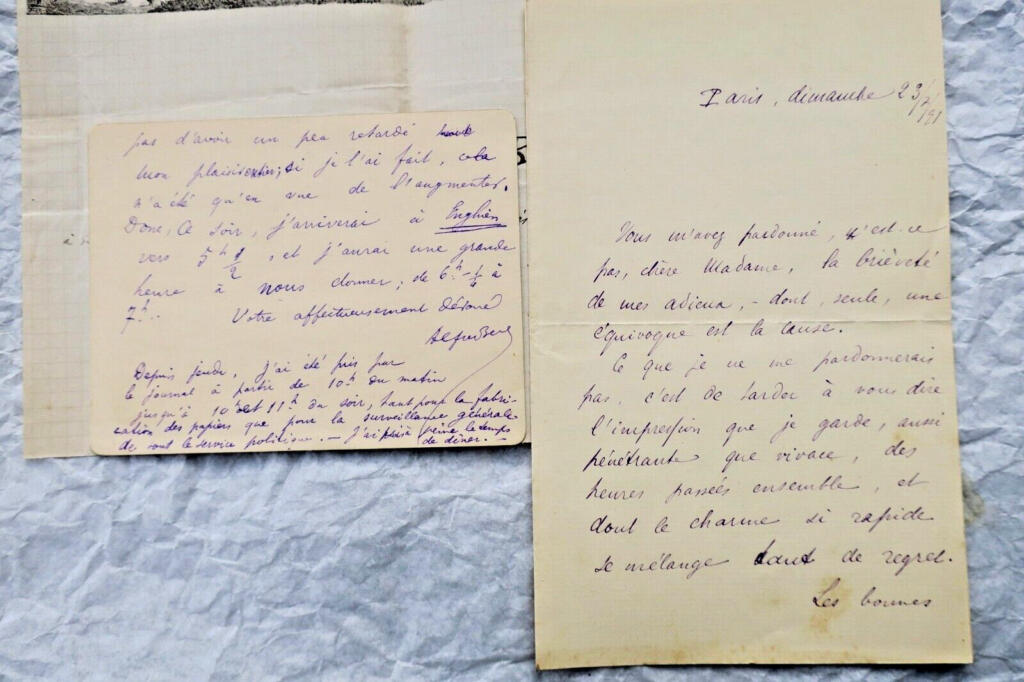 pas d'avoir un peu retardé
mon plaisir entier; si je l'ai fait, cela
n'a été qu'en vue de l'augmenter.
Donc, ce soir, j'arriverai à Enghien
vers 5h 1/2, et j'aurai une grande
heure à nous donner, de 6h à
7h..
Votre affectueusement dévoué
Depuis jeudi, j'ai été pris par
le journal à partir de 10h du matin
jusqu'à 10h et 11h du soir, tant pour la fabri-
cation des papiers que pour la surveillance générale
de tout le service politique. — J'ai à peine le temps
de dîner. —
Paris, dimanche 23
Vous m'avez pardonné, n'est-ce
pas, chère Madame, la brièveté
de mes adieux, - dont, seule, une
équivoque est la cause.
Ce que je ne me pardonnerais
pas, c'est de tarder à vous dire
l'impression que je garde, aussi
pénétrante que vivace, des
heures passées ensemble, et
dont le charme si rapide
se mélange tant de regret.
Les bonnes